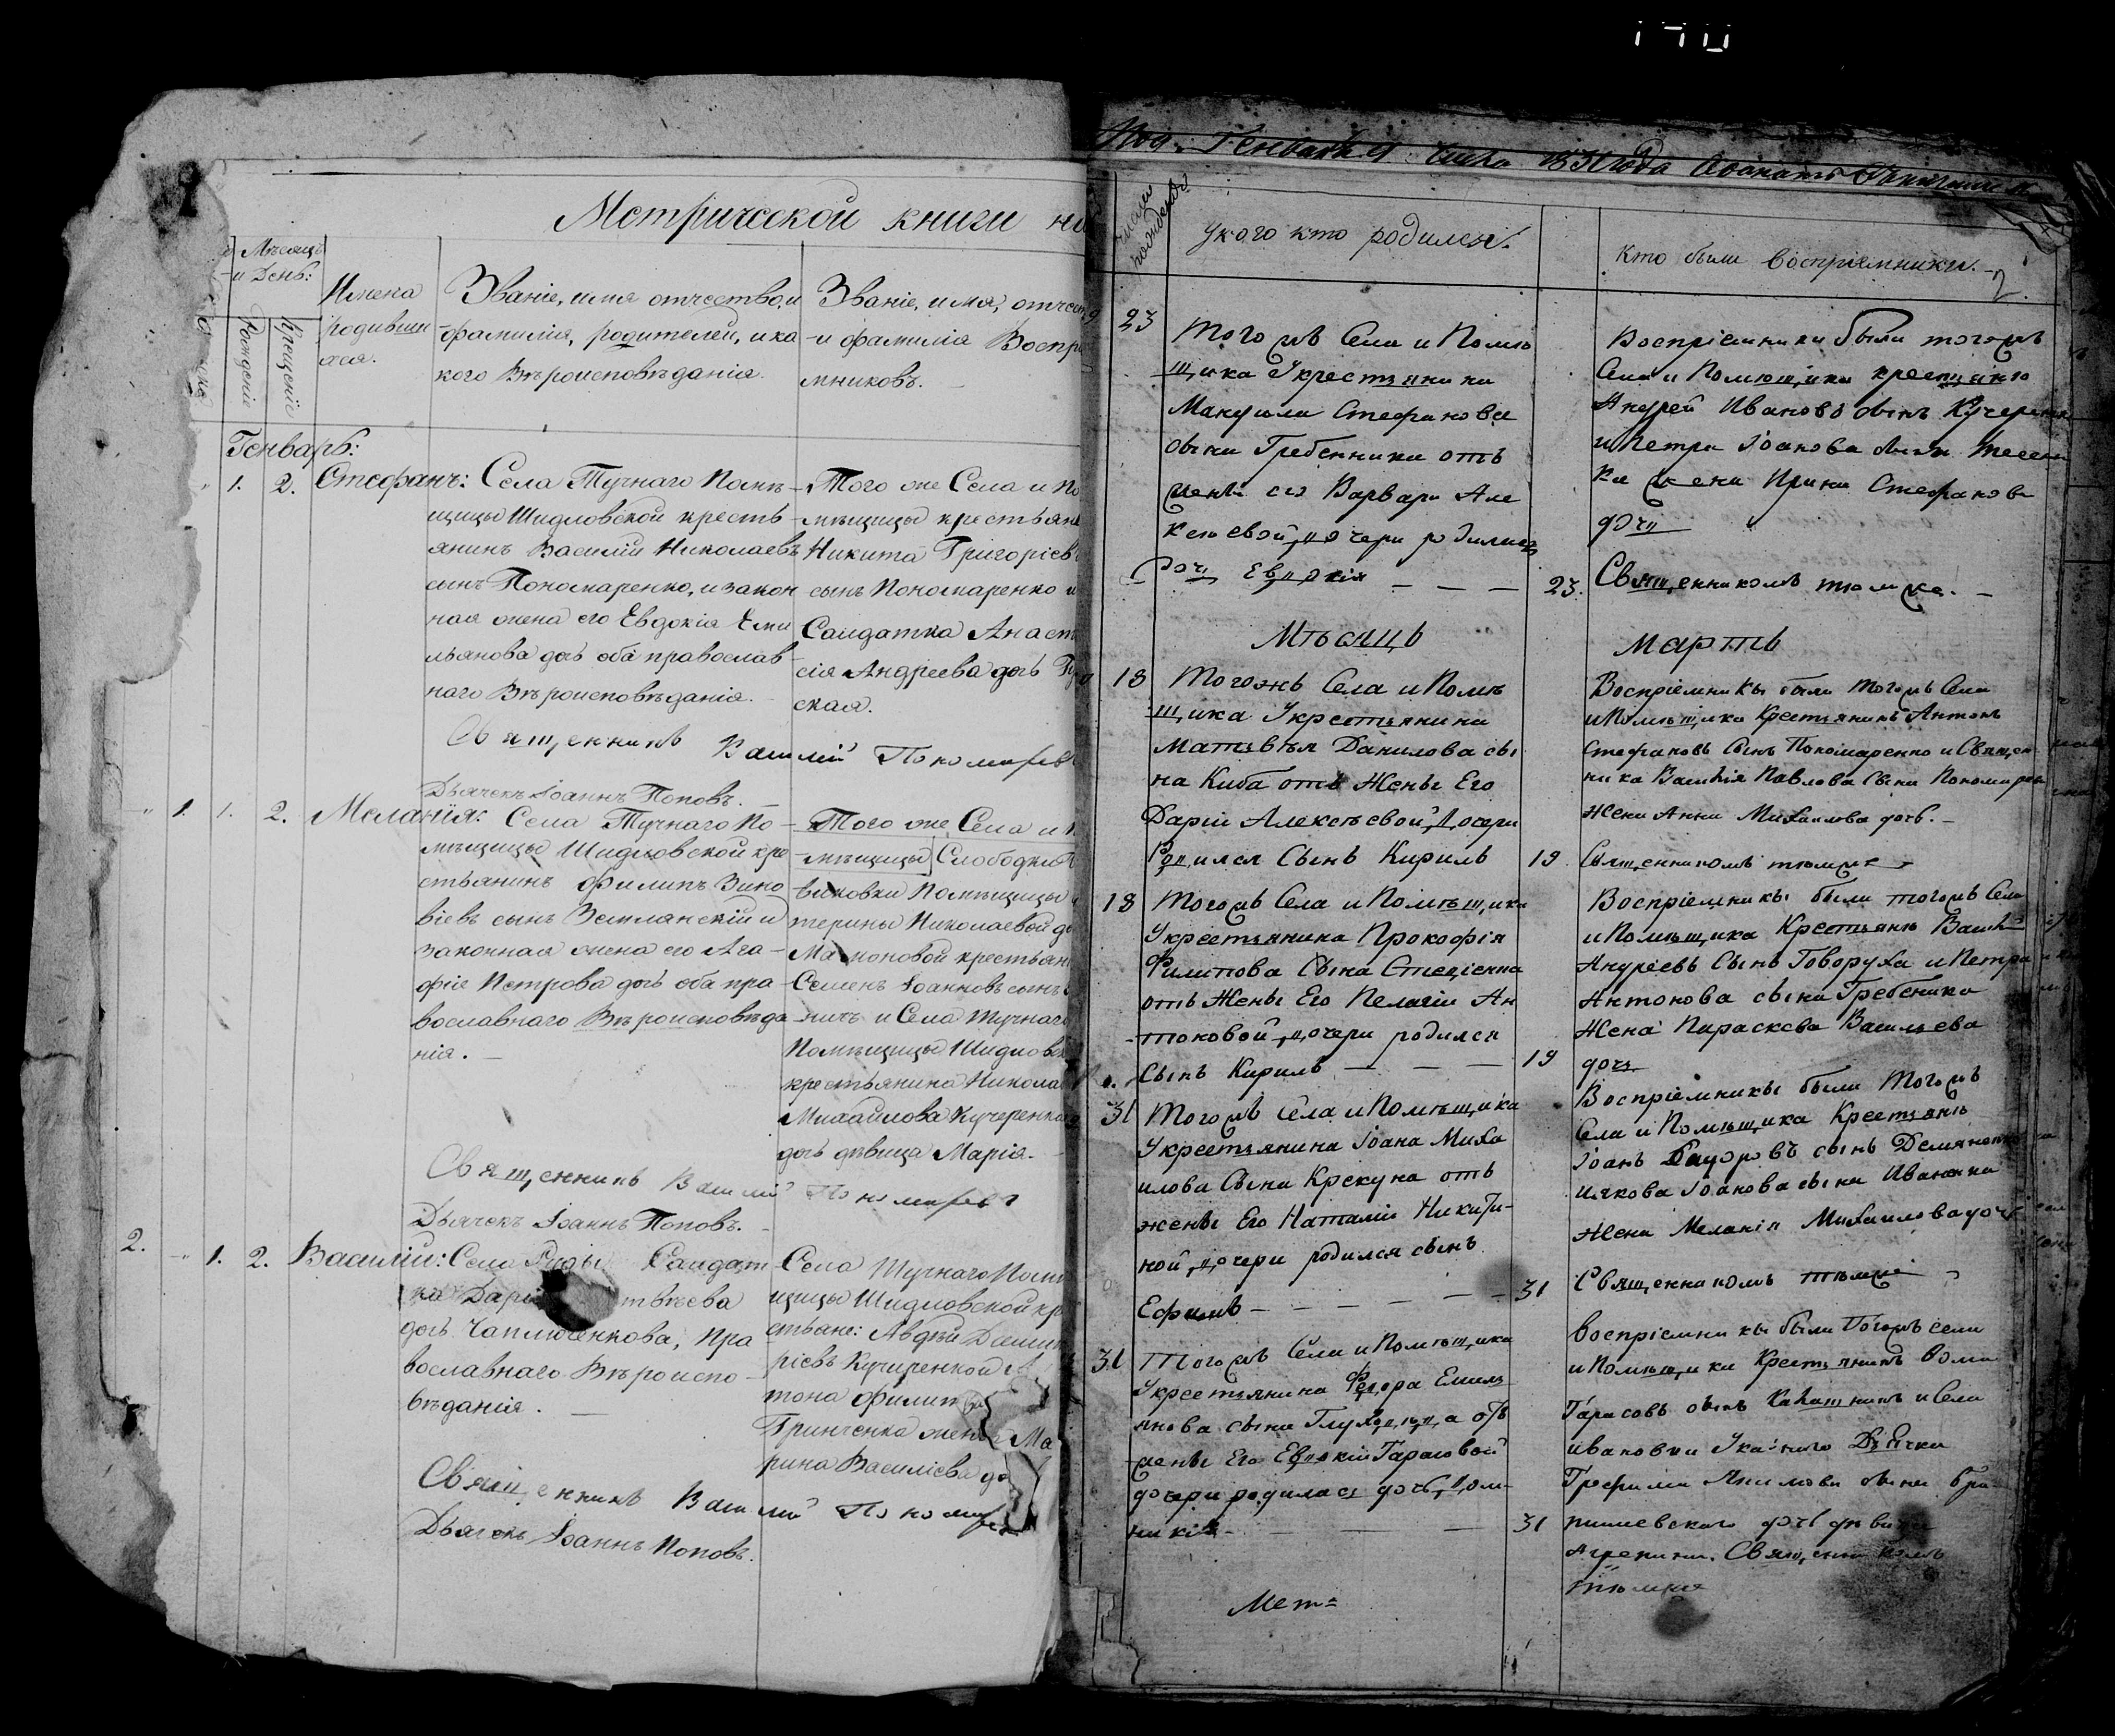 Метрической книги на
Мѣсяцъ
и День:
Рожденіе
Крещеніе
Имена
родивши
хся.
Званіе, имя отчество, и
фамилія, родителей, и ка
кого Вѣроисповѣданія.
Званіе, имя, отчест
и фамилія Воспрі
мниковъ.
Генварь:
1. 2. Стефанъ: Села Тучнаго Помѣ-
щицы Шидловской кресть
янинъ Василій Николаевъ
сынъ Пономаренко, и закон
ная жена его Евдокія Еми
льянова дочь оба православ
наго Вѣроисповѣданія.
Того же Села и По
мѣщицы крестьяни
Никита Григоріевъ
сынъ Пономаренко и
Салдатка Анаста
сія Андреева дочь
ская.
Священникъ Василій Пономаревъ
Дьячекъ Іоаннъ Поповъ.
1. 1. 2. Меланія: Села Тучнаго По-
мѣщицы Шидловской кре
стьянинъ Филипъ Зино
віевъ сынъ Землянскій и
законная жена его Ага-
фія Петрова дочь оба пра-
вославнаго Вѣроисповѣда
нія.
Того же Села и
мѣщицы Слободки
виковки Помѣщицы
терины Николаевой до
Мамоновой крестьян
Семенъ Іоанновъ сынъ
ничъ и Села Тучнаго
Помѣщицы Шидловск
крестьянина Никола
Михайлова Кучеренко
дочь дѣвица Марія.
Священникъ Василій Пономаревъ
Дьячекъ Іоаннъ Поповъ.
2. 1. 2. Василій: Села Салдат
ка Дарі твѣева
дочь Чаплюченкова, Пра
вославнаго Вѣроиспо-
вѣданія.
Села Тучнаго Помѣ
щицы Шидловской кр
стьяне: Авдѣй Дмит
ріевъ Кучиренко и А
тона Филип
Гринченка жена Ма
рина Василіева до
Священникъ Василій Пономаре
Дьячекъ Іоаннъ Поповъ.
Генваря числа года
числа рожденій
у кого кто родился.
кто были воспріемники.
2
23
Того жъ Села и Помѣ
щика Укрестьянина
Мануила Стефанова
сына Гребенника отъ
жены его Варвары Але
ксѣевой дочери родилась
дочь Евдокія
Воспріемники были того жъ
Села и Помѣщика крестьянъ
Андрей Ивановъ сынъ Кучеренк
и Петра Іоанова сына
ка жена Ирина Стефанова
дочь
23. Священникомъ тѣмже.
Мѣсяцъ Мартъ
18 Тогожъ Села и Помѣ
щика Укрестьянина
Матвѣя Данилова сы
на Киба отъ Жены Его
Даріи Алексѣевой дочери
Родился Сынъ Кирилъ
Воспріемникы были тогожъ Села
и Помѣщика Крестьянинъ Антонъ
Стефановъ Сынъ Пономаренко и Священ
ника Василія Павлова Сына Пономарев
Жена Анна Михаилова дочь.
19 Священникомъ тѣмже
18 Тогожъ Села и Помѣщика
Укрестьянина Прокофія
Филипова Сына Стеціенка
отъ Жены Его Пелагіи Ан
тоновой дочери родился
Сынъ Кирилъ
Воспріемникы были тогожъ Села
и Помѣщика Крестьянъ Васил
Андреевъ Сынъ Говоруха и Петра
Антонова сына Гребеника
Жена Параскева Васильева
19 дочь
31 Тогожъ Села и Помѣщика
Укрестьянина Іоана Миха
илова Сына Крекуна отъ
жены Его Наталіи Никити-
ной дочери родился сынъ
Ефимъ
Воспріемникы были Тогожъ
Села и Помѣщика Крестьянъ
Іоанъ сынъ Демяненко
и Якова Іоанова сына Иваненка
Жена Меланія Михаилова дочь
31 Священникомъ тѣмже
31 Тогожъ Села и Помѣщика
Укрестьянина Федора Емель
янова сына отъ
жены Его Евдокіи Тарасовой
дочери родилась дочь Дом-
никія
Воспріемникы были Тогожъ села
и Помѣщика Крестьянинъ
Тарасовъ сынъ и Села
Ивановки Указного Дьячка
Трофима Акимова сына
31 пишевского дочь дѣвица
Агрепина. Священникомъ
тѣмже
Мет=